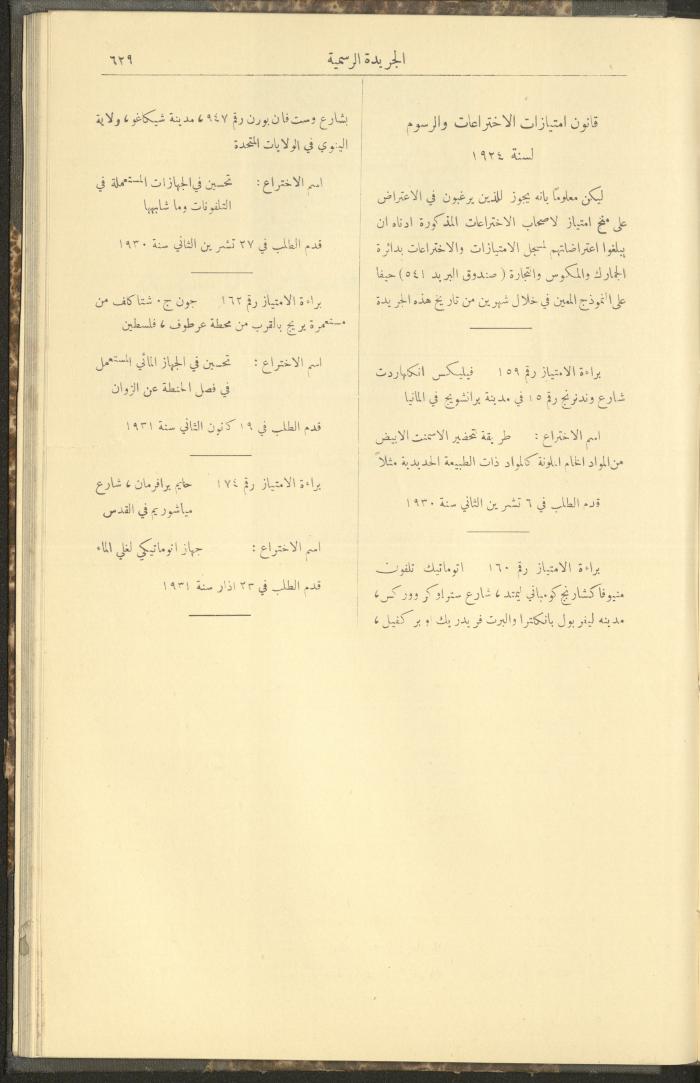 الجريدة الرسمية
٦٢٩
قانون امتيازات الاختراعات والرسوم
لسنة ١٩٢٤
ليكن معلومًا بانه يجوز للذين يرغبون في الاعتراض
على منح امتياز لاصحاب الاختراعات المذكورة ادناه ان
يبلغوا اعتراضاتهم لمسجل الامتيازات والاختراعات بدائرة
الجمارك والمكوس والتجارة (صندوق البريد ٥٤١) حيفا
على النموذج المعين في خلال شهرين من تاريخ هذه الجريدة
براءة الامتياز رقم ١٥٩ فيليكس انكلهاردت
شارع وندنرنج رقم ١٥ في مدينة برانشويج في المانيا
اسم الاختراع : طريقة تحضير الاسمنت الابيض
من المواد الخام الملونة كالمواد ذات الطبيعة الحديدية مثلاً
قدم الطلب في ٦ تشرين الثاني سنة ١٩٣٠
براءة الامتياز رقم ١٦٠ اتوماتيك تلفون
منيوفاكشارنج كومباني ليمتد ، شارع ستراوكر ووركس ،
مدينه ليفربول بانكلترا والبرت فريدريك وبركفيل ،
بشارع وست فان بورن رقم ٩٤٧ ، مدينة شيكاغو ، ولاية
الينوي في الولايات المتحدة
اسم الاختراع : تحسين في الجهازات المستعملة في
التلفونات وما شابهها
قدم الطلب في ٢٧ تشرين الثاني سنة ١٩٣٠
براءة الامتياز رقم ١٦٢ جون ج. شتاكلف من
مستعمرة يريج بالقرب من محطة عرطوف ، فلسطين
اسم الاختراع : تحسين في الجهاز المائي المستعمل
في فصل الحنطة عن الزوان
قدم الطلب في ١٩ كانون الثاني سنة ١٩٣١
براءة الامتياز رقم ١٧٤ حايم برافرمان ، شارع
مياشوريم في القدس
اسم الاختراع : جهاز اتوماتيكي لغلي الماء
قدم الطلب في ٢٣ اذار سنة ١٩٣١